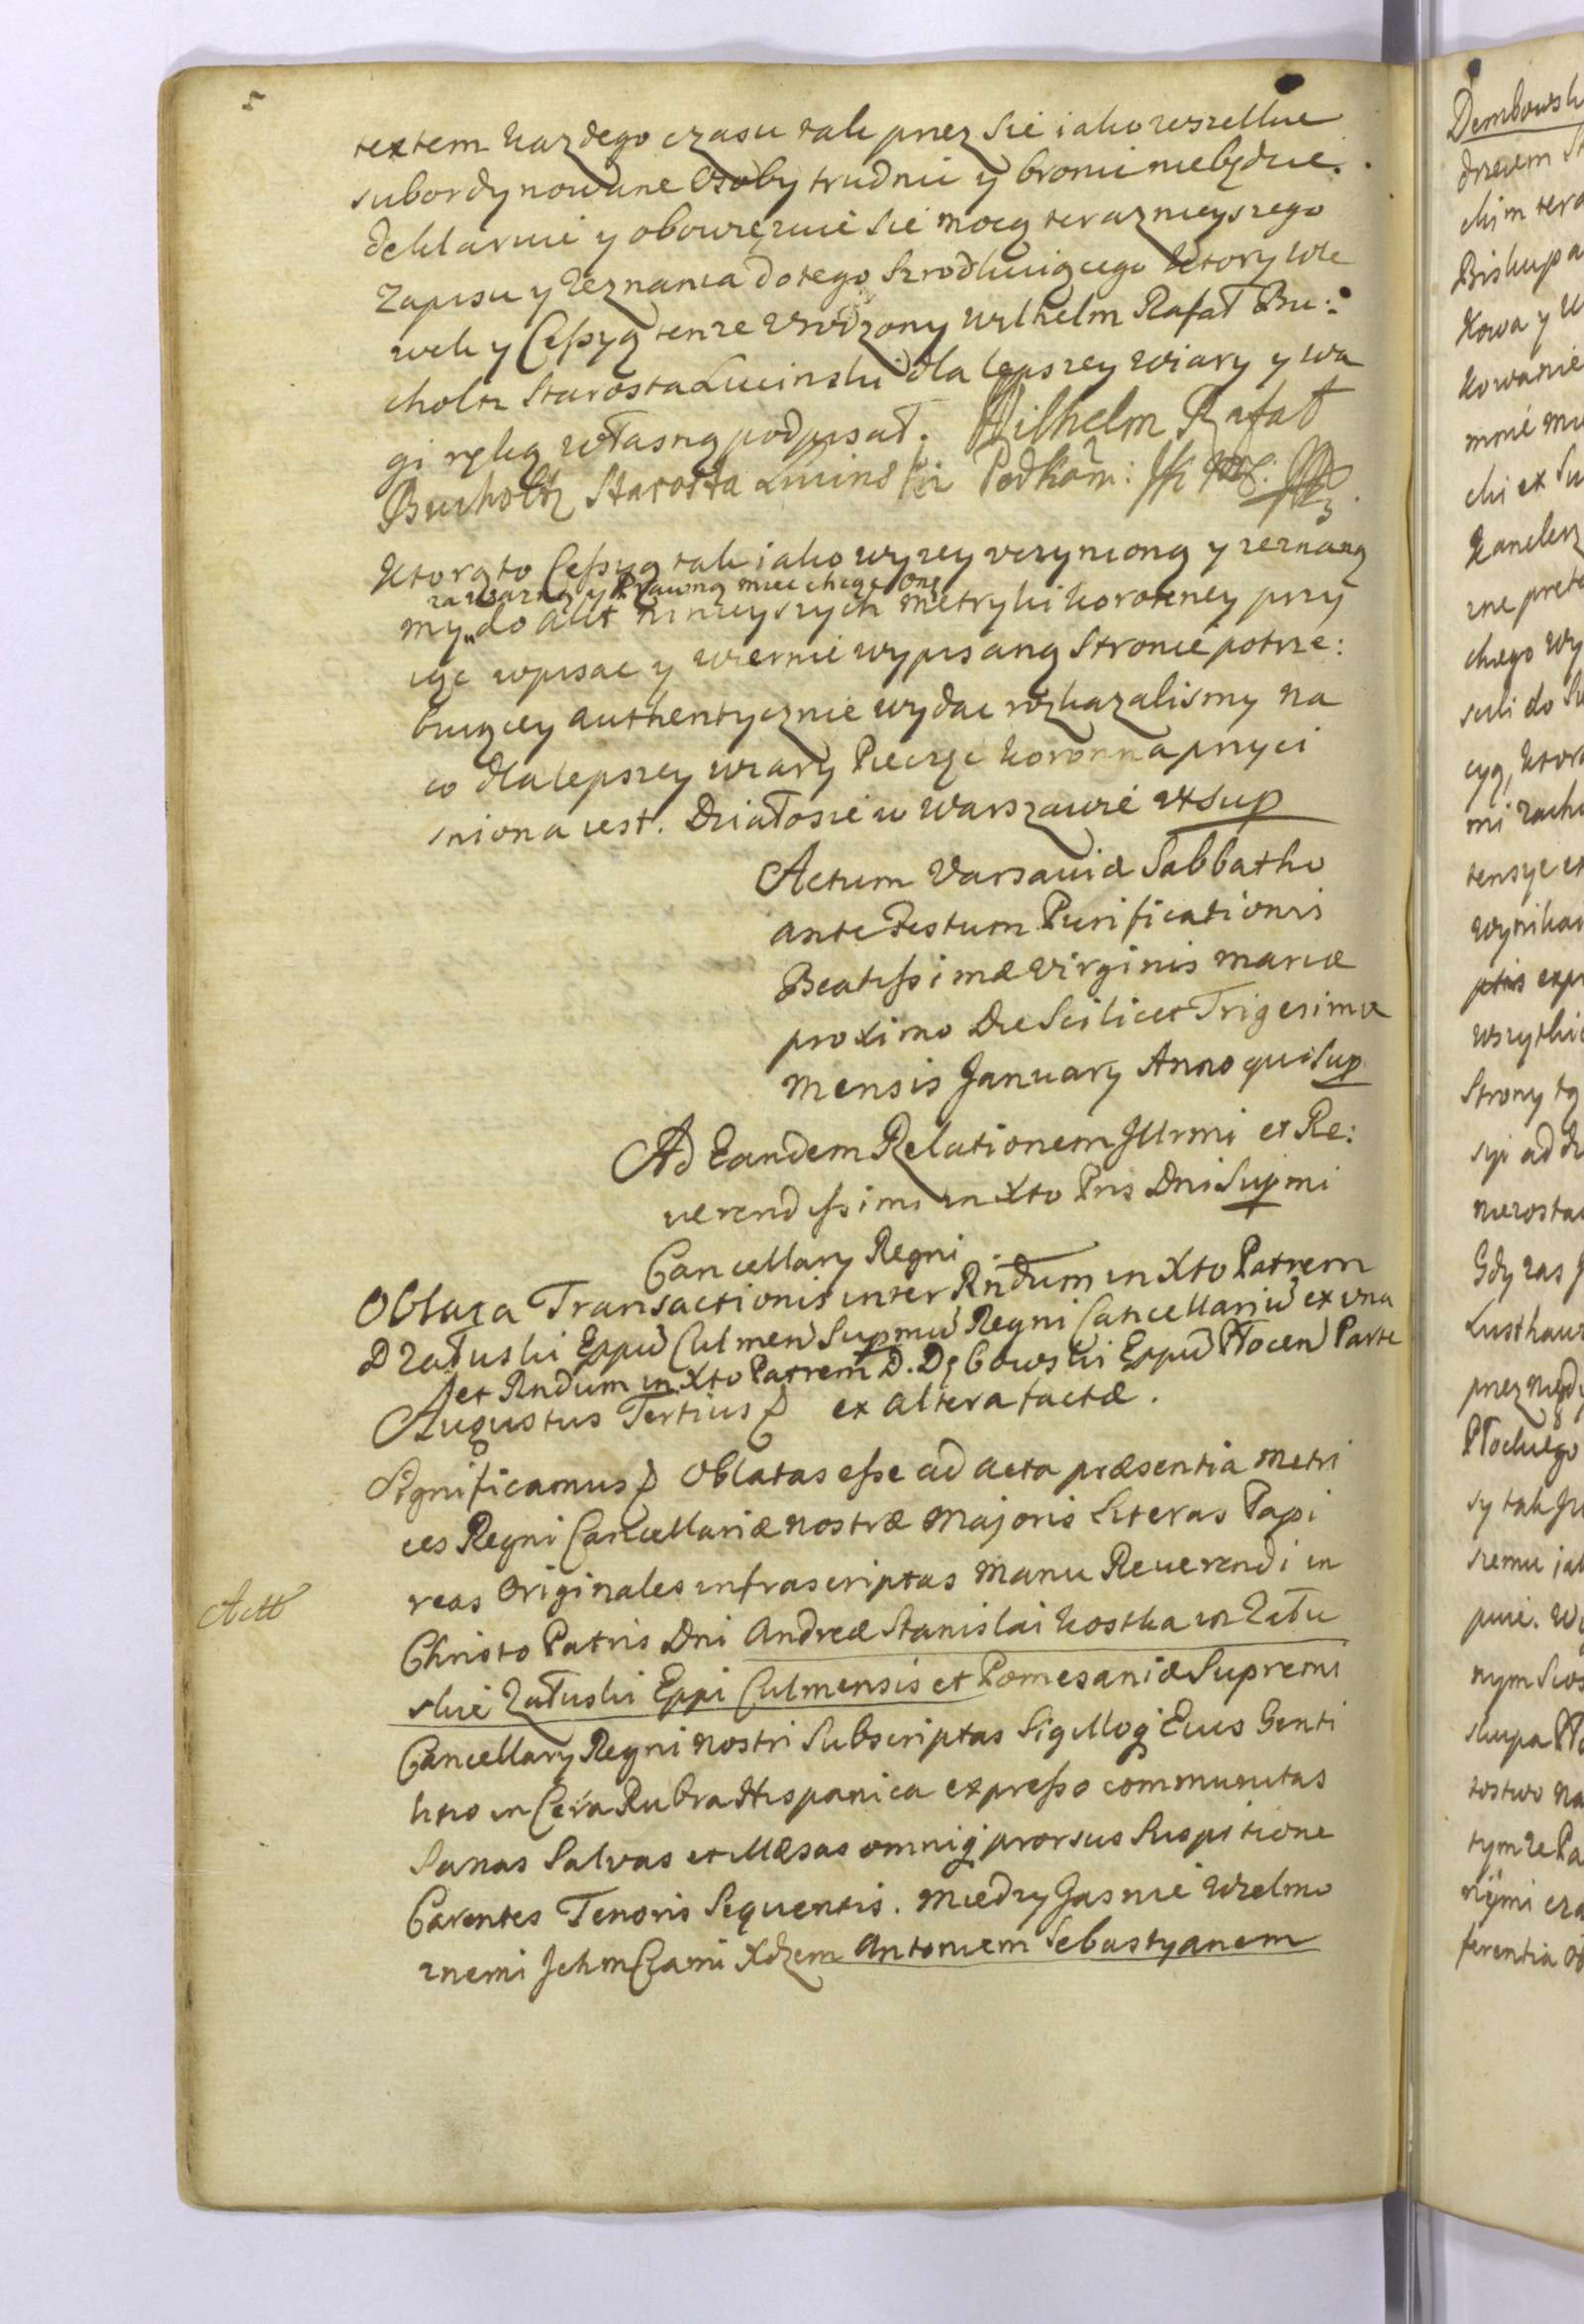 5
textem każdego czasu tak przez sie iako wszelkie
subordynowane Osoby trudnić y bronic niebędzie.
deklaruie y obowięzuie sie mocą teraznieyszego
Zapisu y Zeznania do tego Szrodkuiącego ktory Wle
wek y Cessyą tenze Urodzony Wylhelm Rafał Bu:
choltz Starosta Lucinski dla lepszey wiary y wa
gi ręką własną podpisał. Wilhelm Rafał
Bucholtz Starosta Lucinski Podkom:
Ktorą to Cessyą tak iako wyzey uczynioną y zeznaną
za wazną y Prawną miec chcąc Onę
my do Akt ninieyszych Metryki koronney przy
iąc wpisac y wiernie wypisaną Stronie potrze:
buiącey authentycznie wydac roskazalismy na
co dla lepszey wiary Pieczęc koronna przyci
sniona iest. Działo sie w Warszawie ut sup
Actum Varsaviæ Sabbatho
ante Festum Purificationis
Beatissimæ Virginis Mariæ
proximo Die Scilicet Trigesima
Mensis January Anno quo Sup
Ad Eandem Relationem Illrmi et Re:
verendissimi in Xto Pris Dni Supmi
Cancellary Regni
Oblata Transactionis inter Rndum in Xto Patrem
D Załuski Eppu Culmen Supmu Regni Cancellariu ex una
et Rndum in Xto Patrem D. Dębowski Eppu Płocen Parte
Augustus Tertius ex altera factæ.
Significamus Oblatas esse ad acta præsentia Metri
ces Regni Cancellariæ nostræ Majoris Literas Papi
reas Originales infrascriptas Manu Reverendi in
Actt
Christo Patris Dni Andreæ Stanislai Kostka in Zału
skie Załuski Eppi Culmensis et Pomesaniæ Supremi
Cancellary Regni nostri Subscriptas Sigilloq Eius Genti
litio in Cera Rubra Hispanica expresso communitas
Sanas Salvas et illæsas omniq prorsus Suspitione
Carentes Tenoris Sequentis. Miedzy Jasnie Wielmo
znemi Ichm Ciami Xdzem Antoniem Sebastyanem